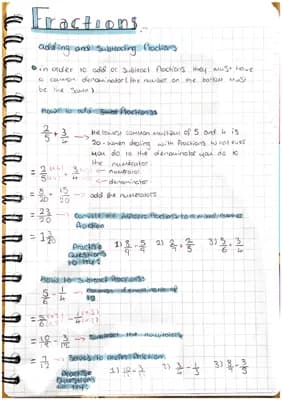 Fractions
adding and subtracting fractions
• in order to add or subtract fractions they must have
a common denominator (the number on the bottom must
be the same).
How to add fractions
2/5 + 3/4 → the lowest common multiple of 5 and 4 is
20 - when dealing with fractions
you do to the denominator you do to
the numerator
= 2/5 + 3/4 → numerator
→ denominator
= 8/20 + 15/20 → add the numerators
= 23/20 → fraction to a mixed number
fraction
= 1 3/20
Practise
Questions
to try:
2) 2/7 + 2/5
3) 5/6 + 3/4
How to subtract fractions
5/6 - 1/4 → common denominator
= 5/6 - 1/4
= 10/12 - 3/12 → subtract the numerators
= 7/12 →
Practise
Questions
to try:
2) 3/4 - 1/3